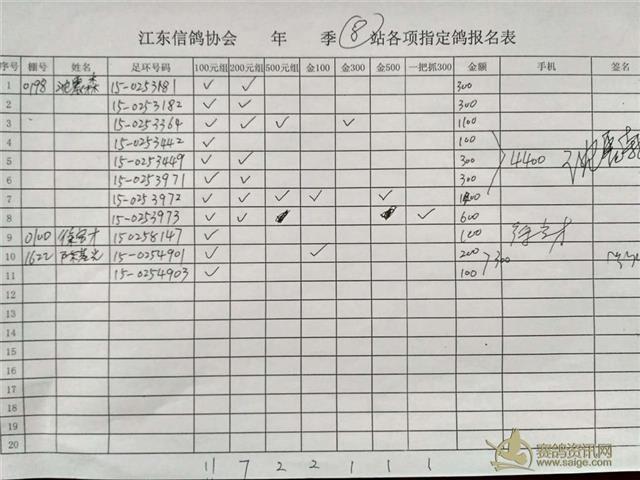 江东信鸽协会 年 季 ⑧ 站各项指定鸽报名表
序号 棚号 姓名 足环号码 100元组 200元组 500元组 金100 金300 金500 一把抓300 金额 手机 签名
1 0198 森 15-0253181 ✓ ✓ 300
2 15-0253182 ✓ ✓ 300
3 15-0253364 ✓ ✓ ✓ ✓ 1100
4 15-0253442 ✓ 100
5 15-0253449 ✓ ✓ 300 4400
6 15-0253971 ✓ ✓ 300
7 15-0253972 ✓ ✓ ✓ ✓ ✓
8 15-0253973 ✓ ✓ ✓ 600
9 0100 徐才 150258147 ✓ 100
10 1622 15-0254901 ✓ ✓ 200 300
11 15-0254903 ✓ 100
12
13
14
15
16
17
18
19
20
11 7 2 2 1 1 1
赛鸽资讯网
www.saige.com